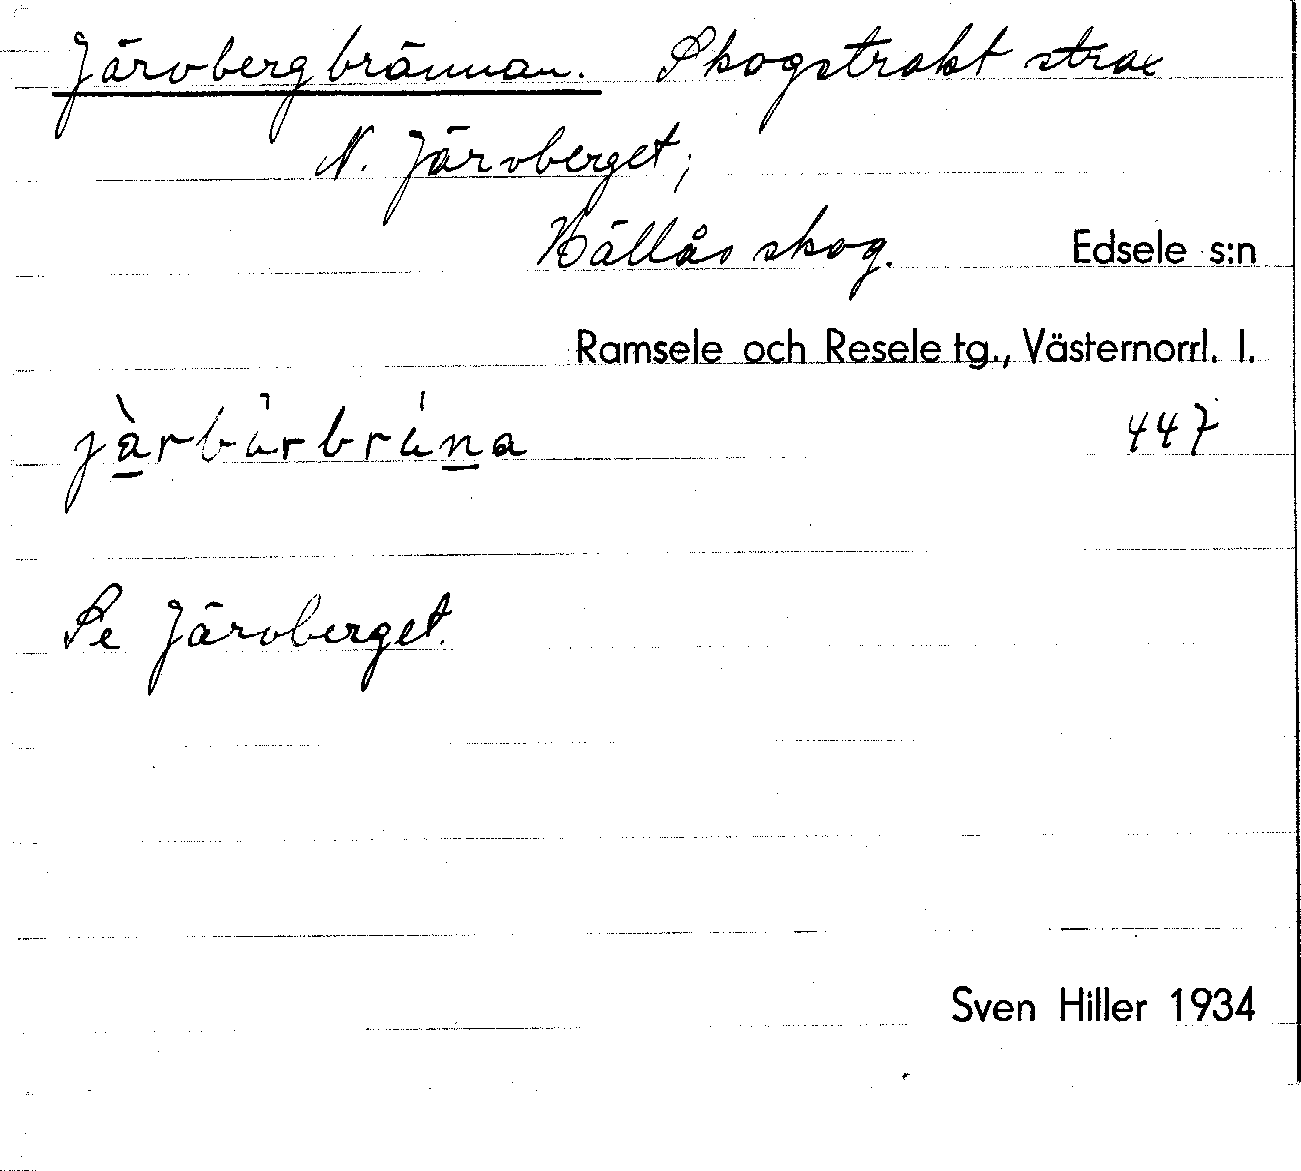 Järvbergbrännan. Skogstrakt strax
N. Järvberget,
Hällås skog. Edsele s:n
Ramsele och Resele tg., Västernorrl. l.
447
Se Järvberget.
Sven Hiller 1934